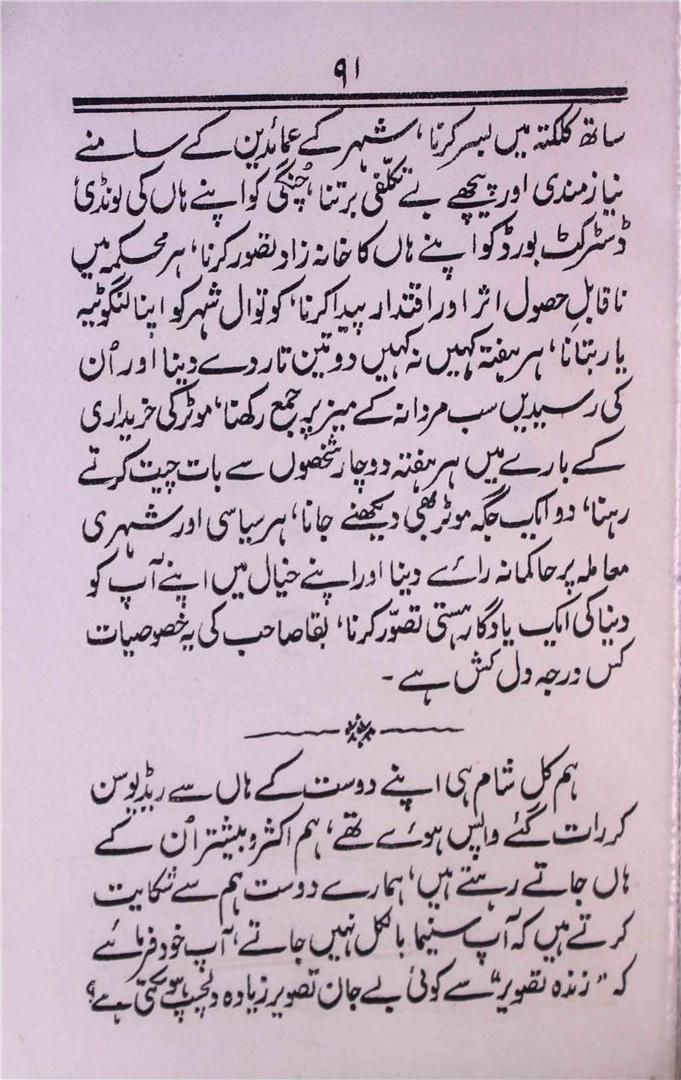 ۹۱
ساتھ کلکتہ میں بسر کرنا، شہر کے عمائدین کے سامنے
نیازمندی اور پیچھے بے تکلّفی برتنا، چُنگی کو اپنے ہاں کی لونڈی
ڈسٹرکٹ بورڈ کو اپنے ہاں کا خانہ زاد تصور کرنا، ہر محکمہ میں
ناقابلِ حصول اثر اور اقتدار پیدا کرنا، کوتوال شہر کو اپنا لنگوٹیہ
یار بتانا، ہر ہفتہ کہیں نہ کہیں دو تین تار دے دینا اور اُن
کی رسیدیں سب مردانہ کے میز پر جمع رکھنا، موٹر کی خریداری
کے بارے میں ہر ہفتہ دو چار شخصوں سے بات چیت کرتے
رہنا، دو ایک جگہ موٹر بھی دیکھنے جانا، ہر سیاسی اور شہری
معاملہ پر حاکمانہ رائے دینا اور اپنے خیال میں اپنے آپ کو
دنیا کی ایک یادگار ہستی تصوّر کرنا، بقا صاحب کی یہ خصوصیات
کس درجہ دل کش ہے۔
ہم کل شام ہی اپنے دوست کے ہاں سے ریڈیو سن
کر رات گئے واپس ہوئے تھے، ہم اکثر و بیشتر اُن کے
ہاں جاتے رہتے ہیں، ہمارے دوست ہم سے شکایت
کرتے ہیں کہ آپ سنیما بالکل نہیں جاتے، آپ خود فرمائیے
کہ "زندہ تصویر" سے کوئی بے جان تصویر زیادہ دلچسپ ہو سکتی ہے؟